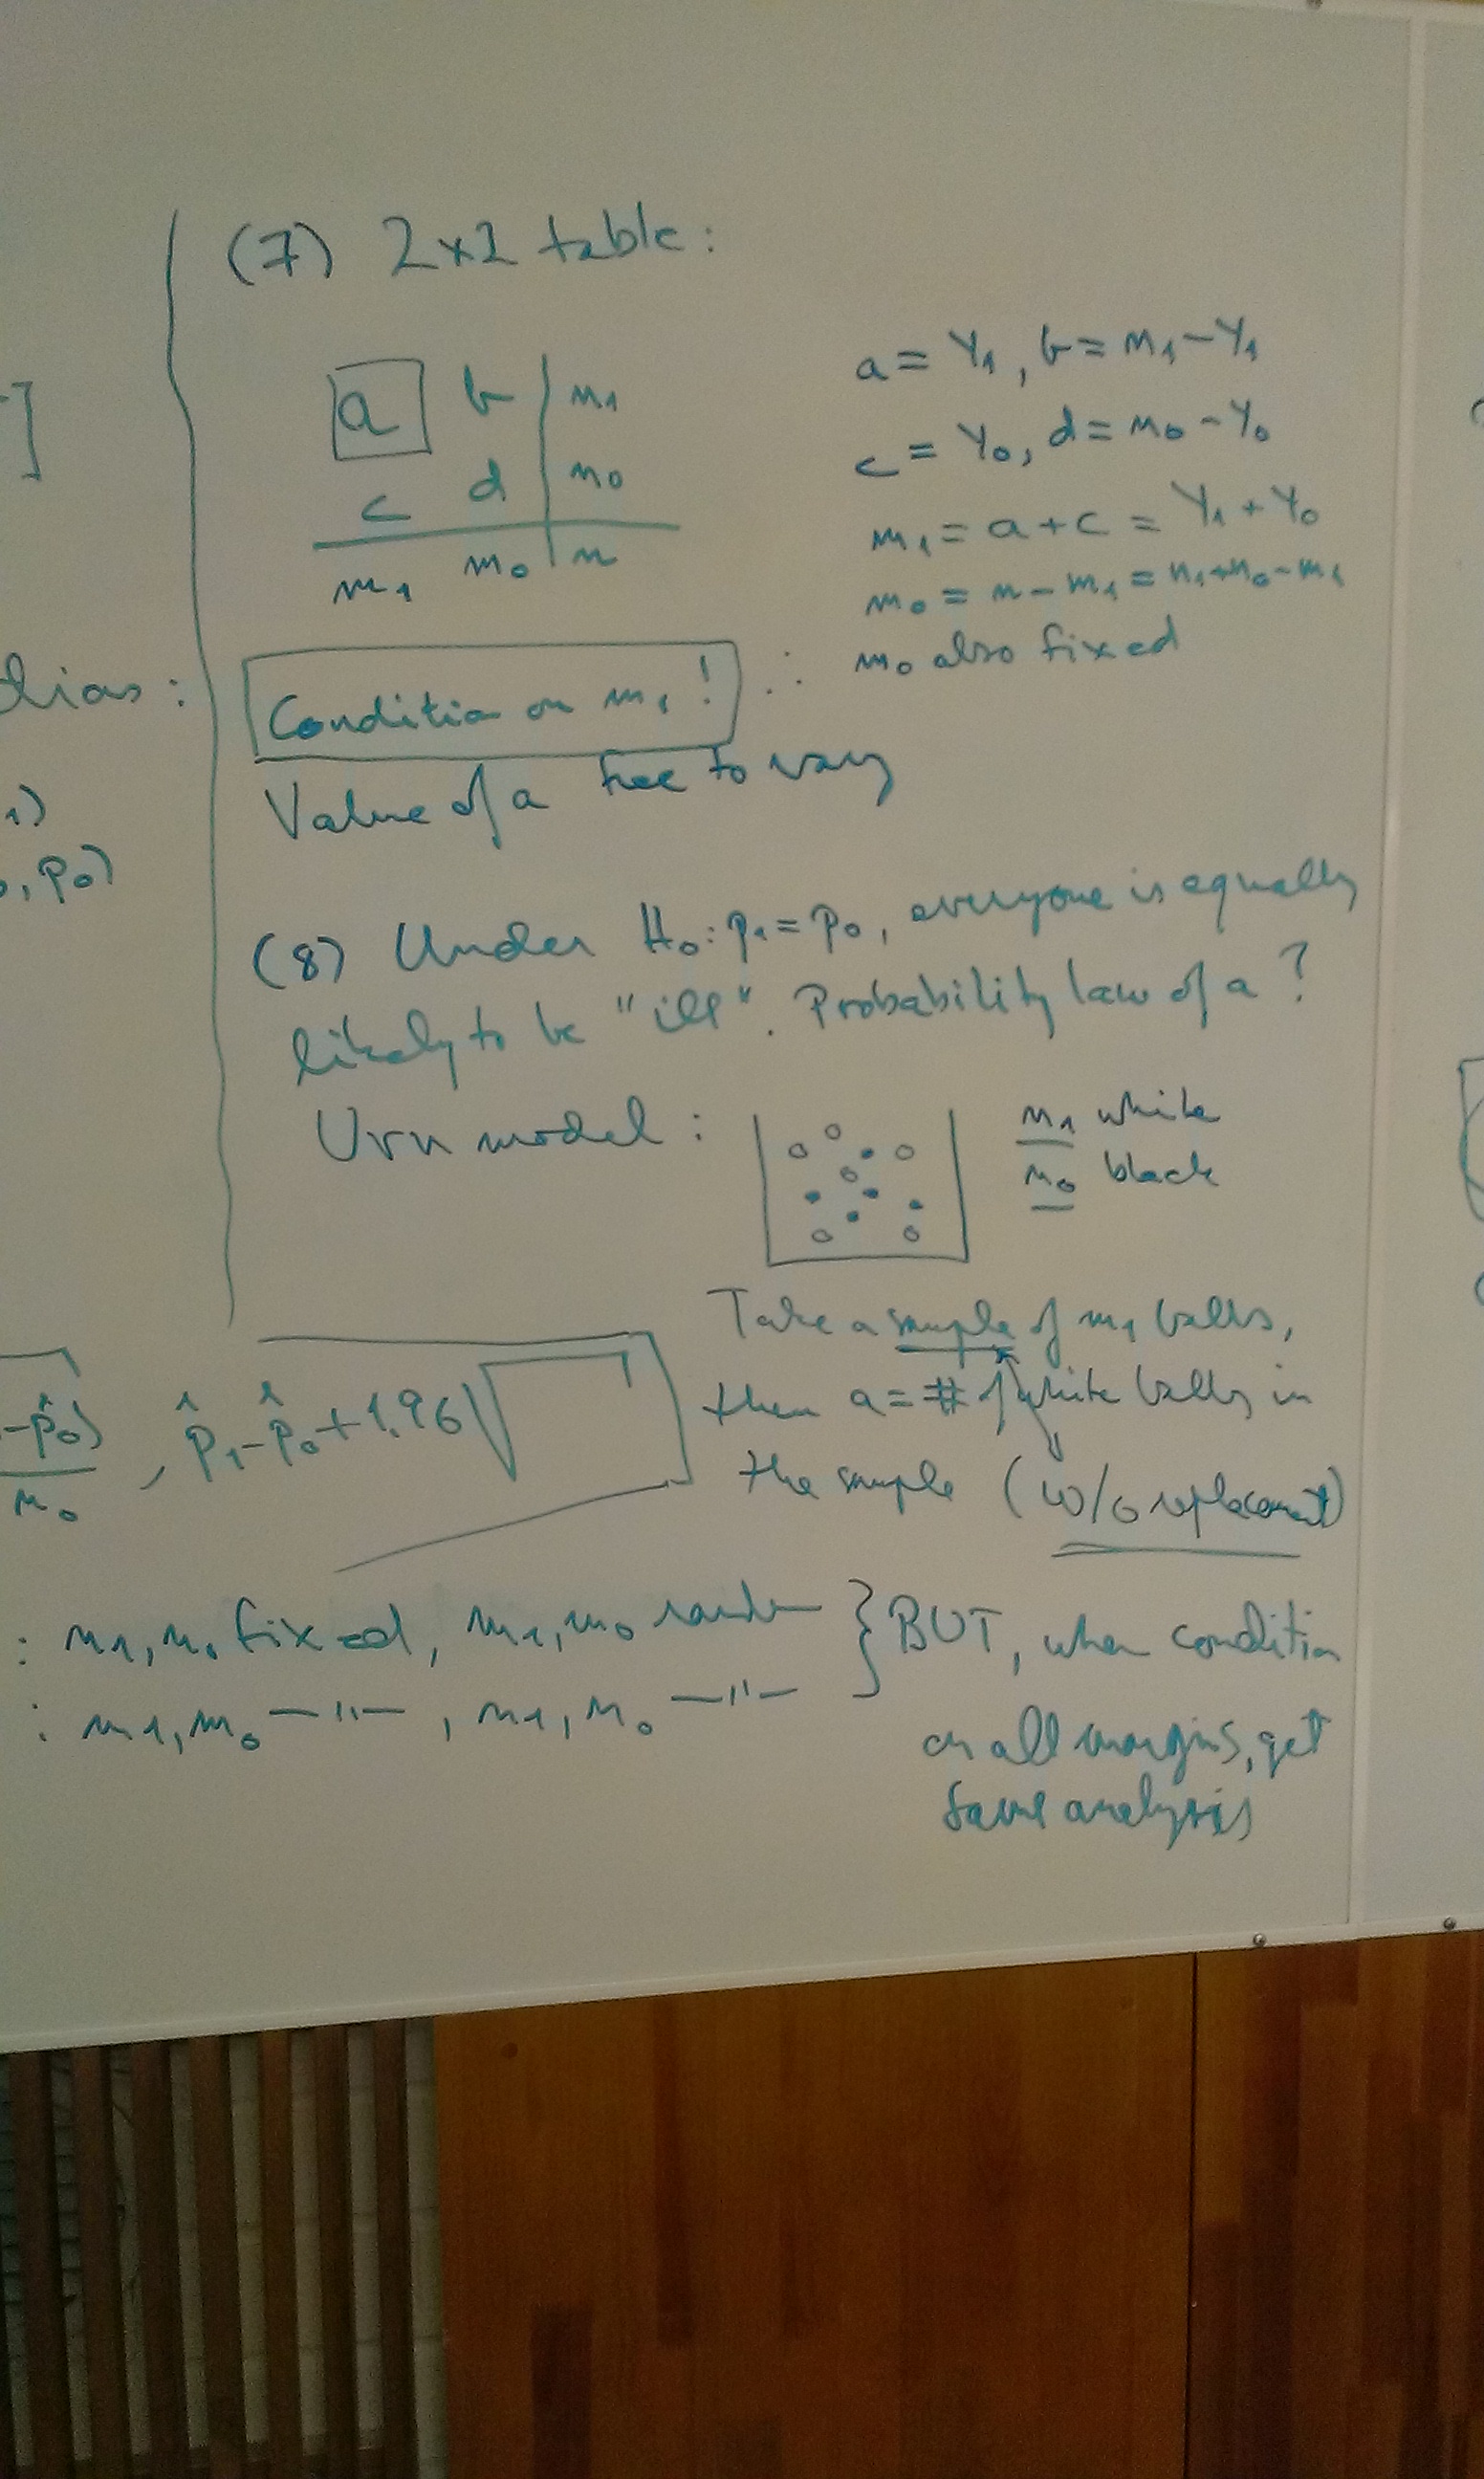 (7) 2x2 table:
a b | n₁
c d | n₀
m₁ m₀ | n
a = Y₁, b = n₁ - Y₁
c = Y₀, d = n₀ - Y₀
m₁ = a + c = Y₁ + Y₀
m₀ = n - m₁ = n₁+n₀-m₁
Condition on m₁! ∴ m₀ also fixed
Value of a free to vary
(8) Under H₀: p₁ = p₀, everyone is equally
likely to be "ill". Probability law of a?
Urn model: n₁ white
n₀ black
Take a sample of m₁ balls,
then a = # of white balls in
the sample (w/o replacement)
dias:
₁)
, p₀)
-p̂₀)
n₀
, p̂₁-p̂₀+1.96√
: n₁, n₀ fixed, m₁, m₀ random } BUT, when condition
: m₁, m₀ —"—, n₁, n₀ —"—
on all margins, get
same analysis